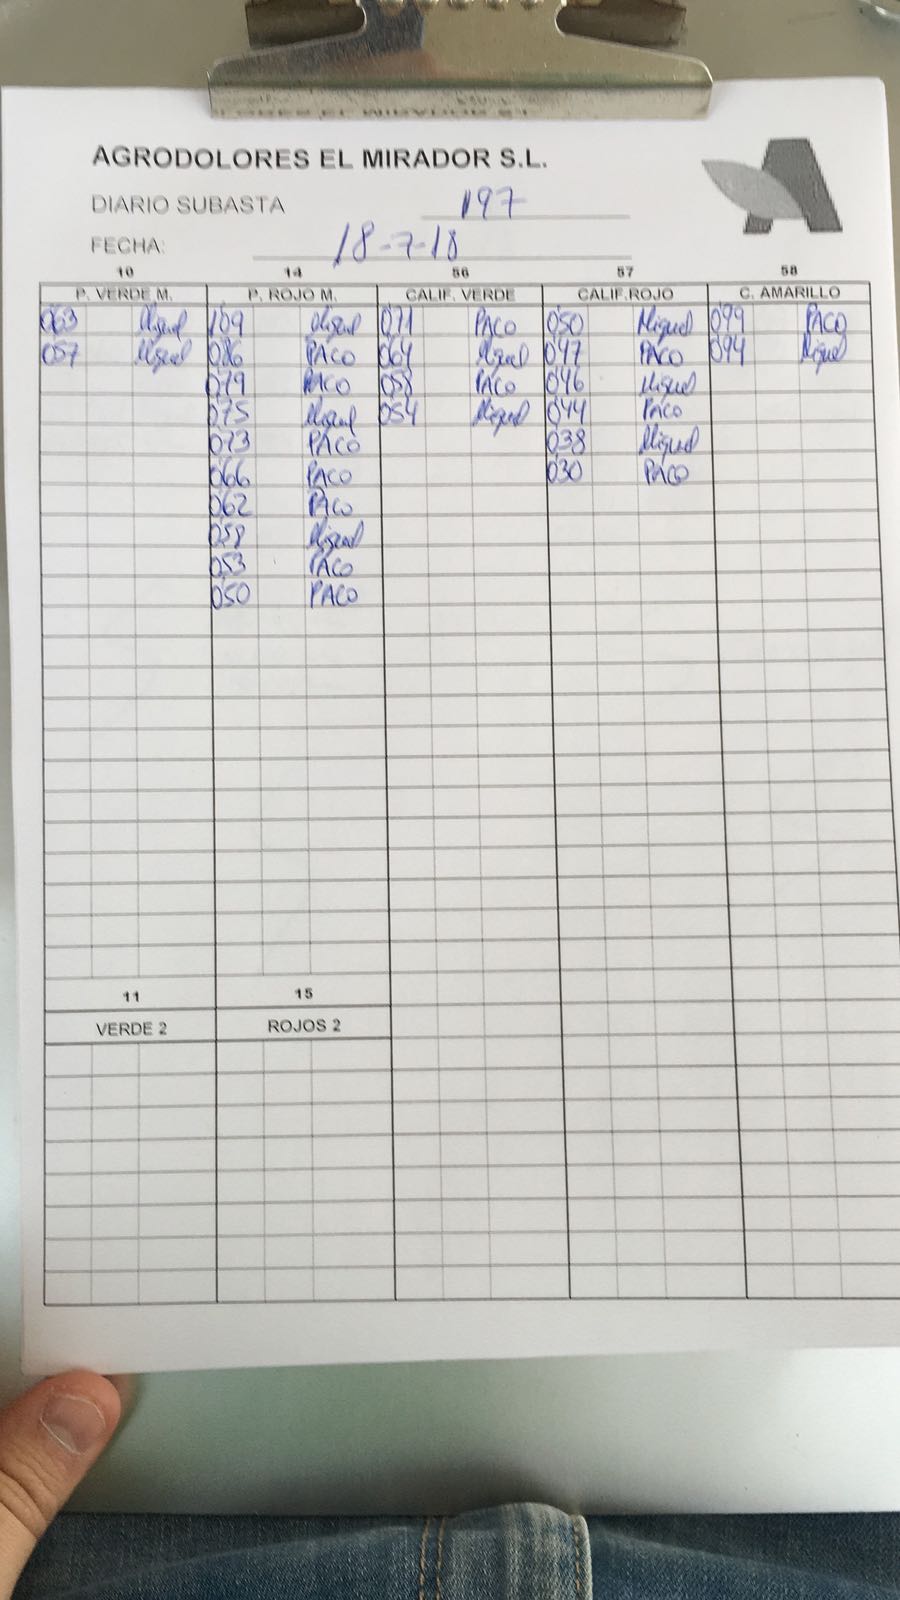 AGRODOLORES EL MIRADOR S.L.
DIARIO SUBASTA 197
FECHA: 18-7-18
10 14 56 57 58
P. VERDE M. P. ROJO M. CALIF. VERDE CALIF.ROJO C. AMARILLO
063 Miguel 109 Miguel 071 PACO 050 Miguel 099 PACO
057 Miguel 086 PACO 064 Miguel 047 PACO 094 Miguel
079 PACO 058 PACO 046 Miguel
075 Miguel 054 Miguel 044 PACO
073 PACO 038 Miguel
066 PACO 030 PACO
062 PACO
058 Miguel
053 PACO
050 PACO
11 15
VERDE 2 ROJOS 2